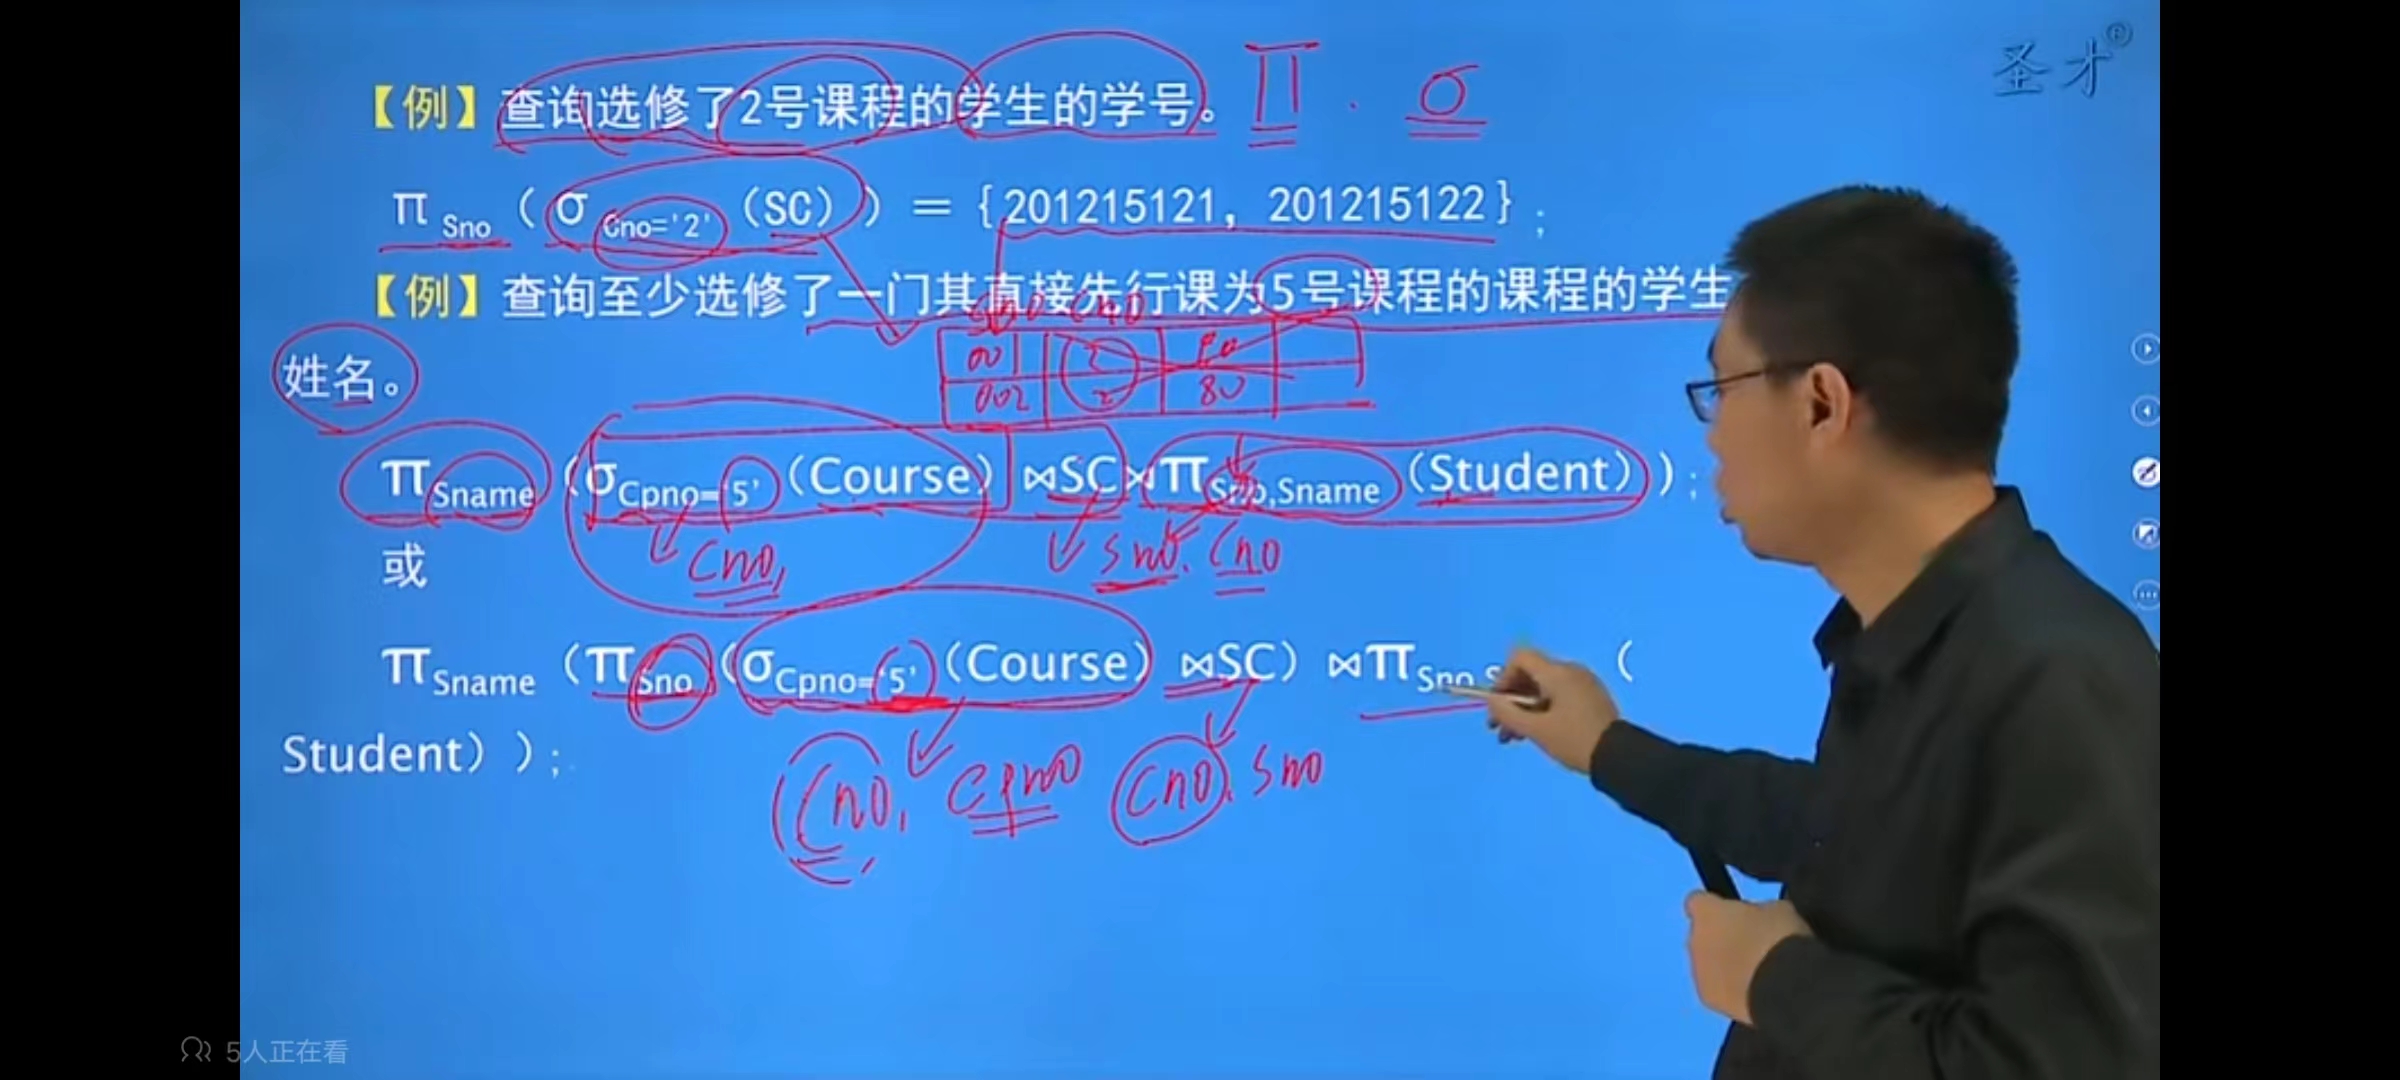 圣才®
【例】查询选修了2号课程的学生的学号。 Π . σ
π Sno ( σ Cno='2' (SC) ) = {201215121, 201215122} ;
【例】查询至少选修了一门其直接先行课为5号课程的课程的学生
Sno Cno
001 2
002 2 80
姓名。
πSname (σCpno='5' (Course) ⋈SC⋈πSno,Sname (Student) ) ;
Cno, Sno. Cno
或
πSname (πSno (σCpno='5' (Course) ⋈SC) ⋈πSno,S (
Student) ) ;
Cno, Cpno Cno. Sno
5人正在看